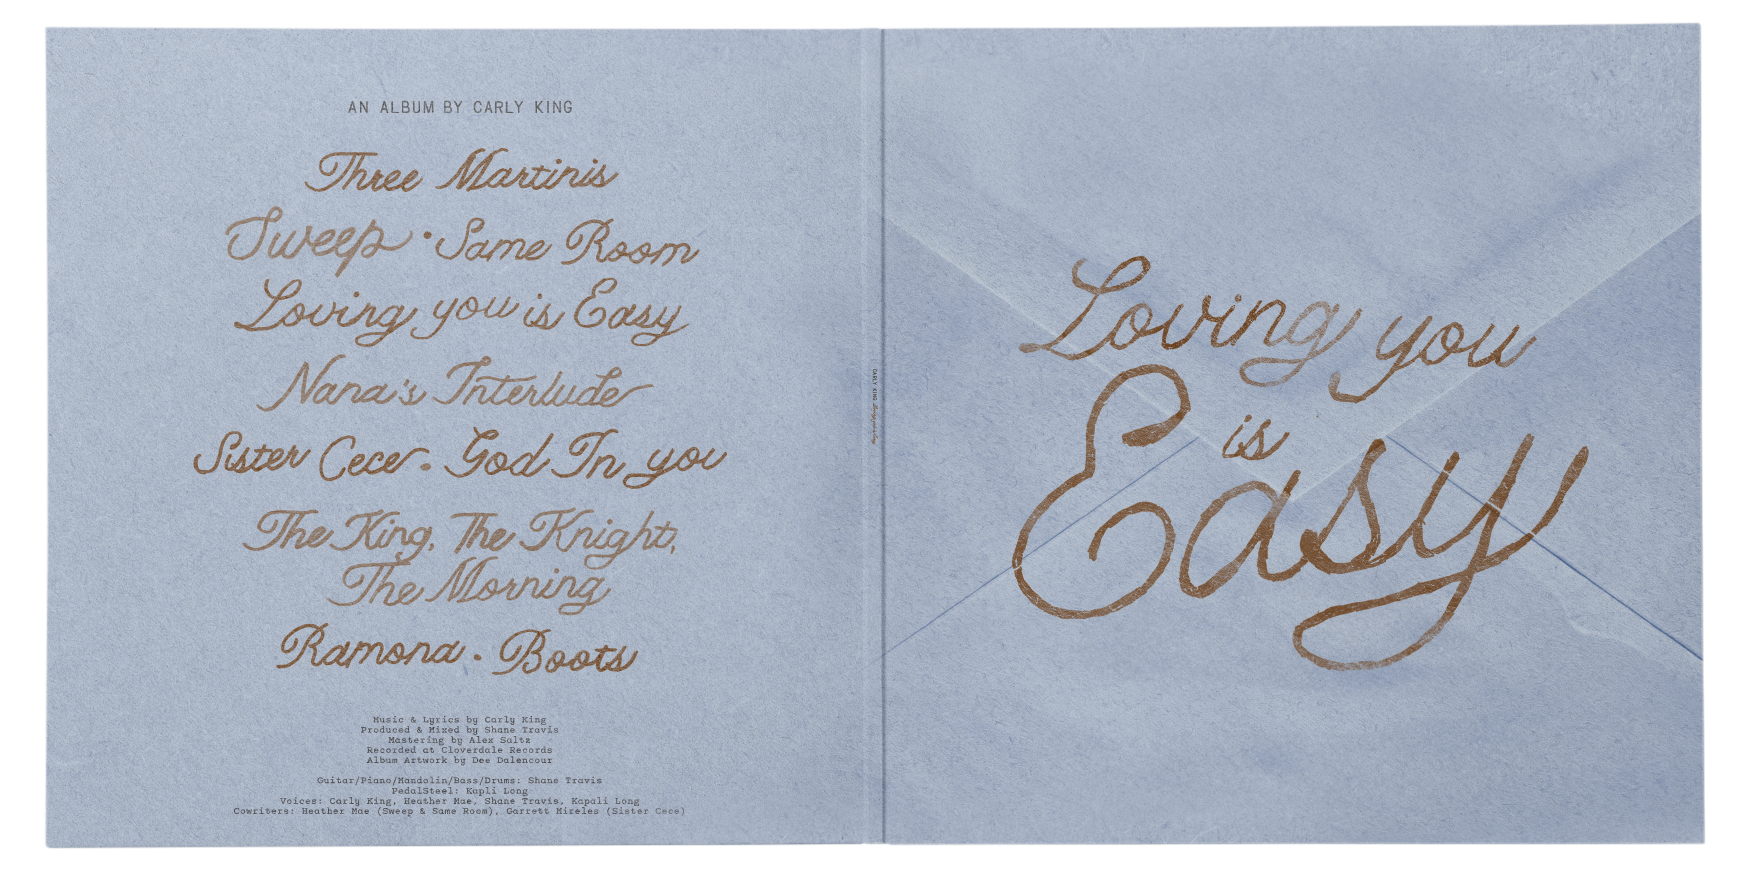 AN ALBUM BY CARLY KING
Three Martinis
Sweep · Same Room
Loving you is Easy
Nana's Interlude
Sister Cece · God In you
The King, The Knight,
The Morning
Ramona · Boots
Music & Lyrics by Carly King
Produced & Mixed by Shane Travis
Mastering by Alex Saltz
Recorded at Cloverdale Records
Album Artwork by Dee Dalencour
Guitar/Piano/Mandolin/Bass/Drums: Shane Travis
PedalSteel: Kapli Long
Voices: Carly King, Heather Mae, Shane Travis, Kapali Long
Cowriters: Heather Mae (Sweep & Same Room), Garrett Mireles (Sister Cece)
CARLY KING Loving you is Easy
Loving you
is
Easy